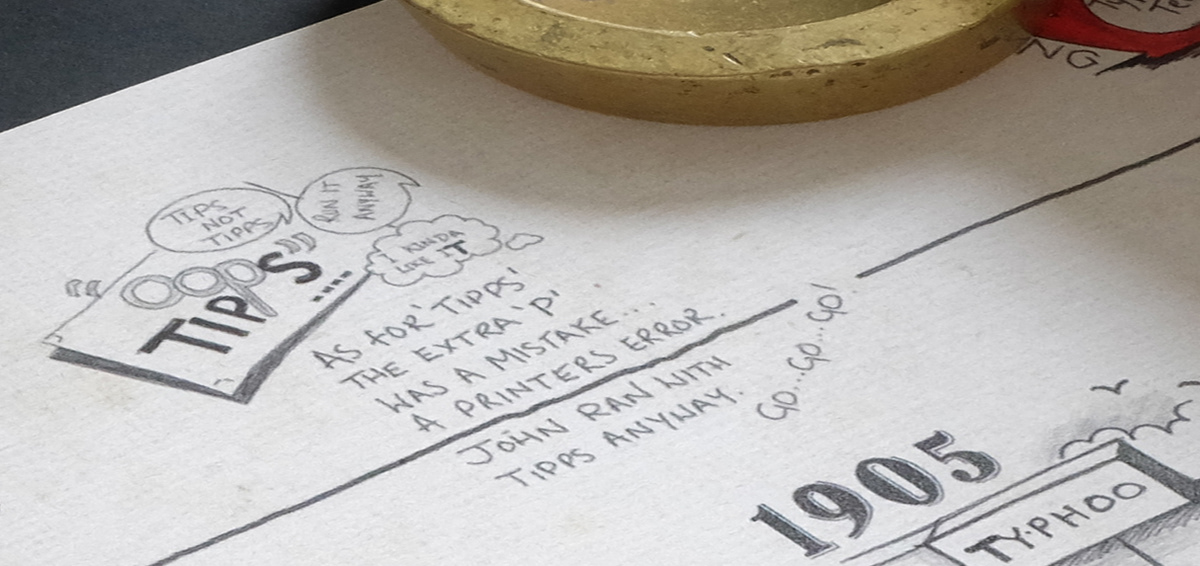 TIPS
NOT
TIPPS
RUN IT
ANYWAY
I KINDA
LIKE IT
OOPS....
TIP
AS FOR 'TIPPS'
THE EXTRA 'P'
WAS A MISTAKE...
A PRINTERS ERROR.
JOHN RAN WITH
TIPPS ANYWAY.
GO..GO..GO!
1905
TY·PHOO
NG